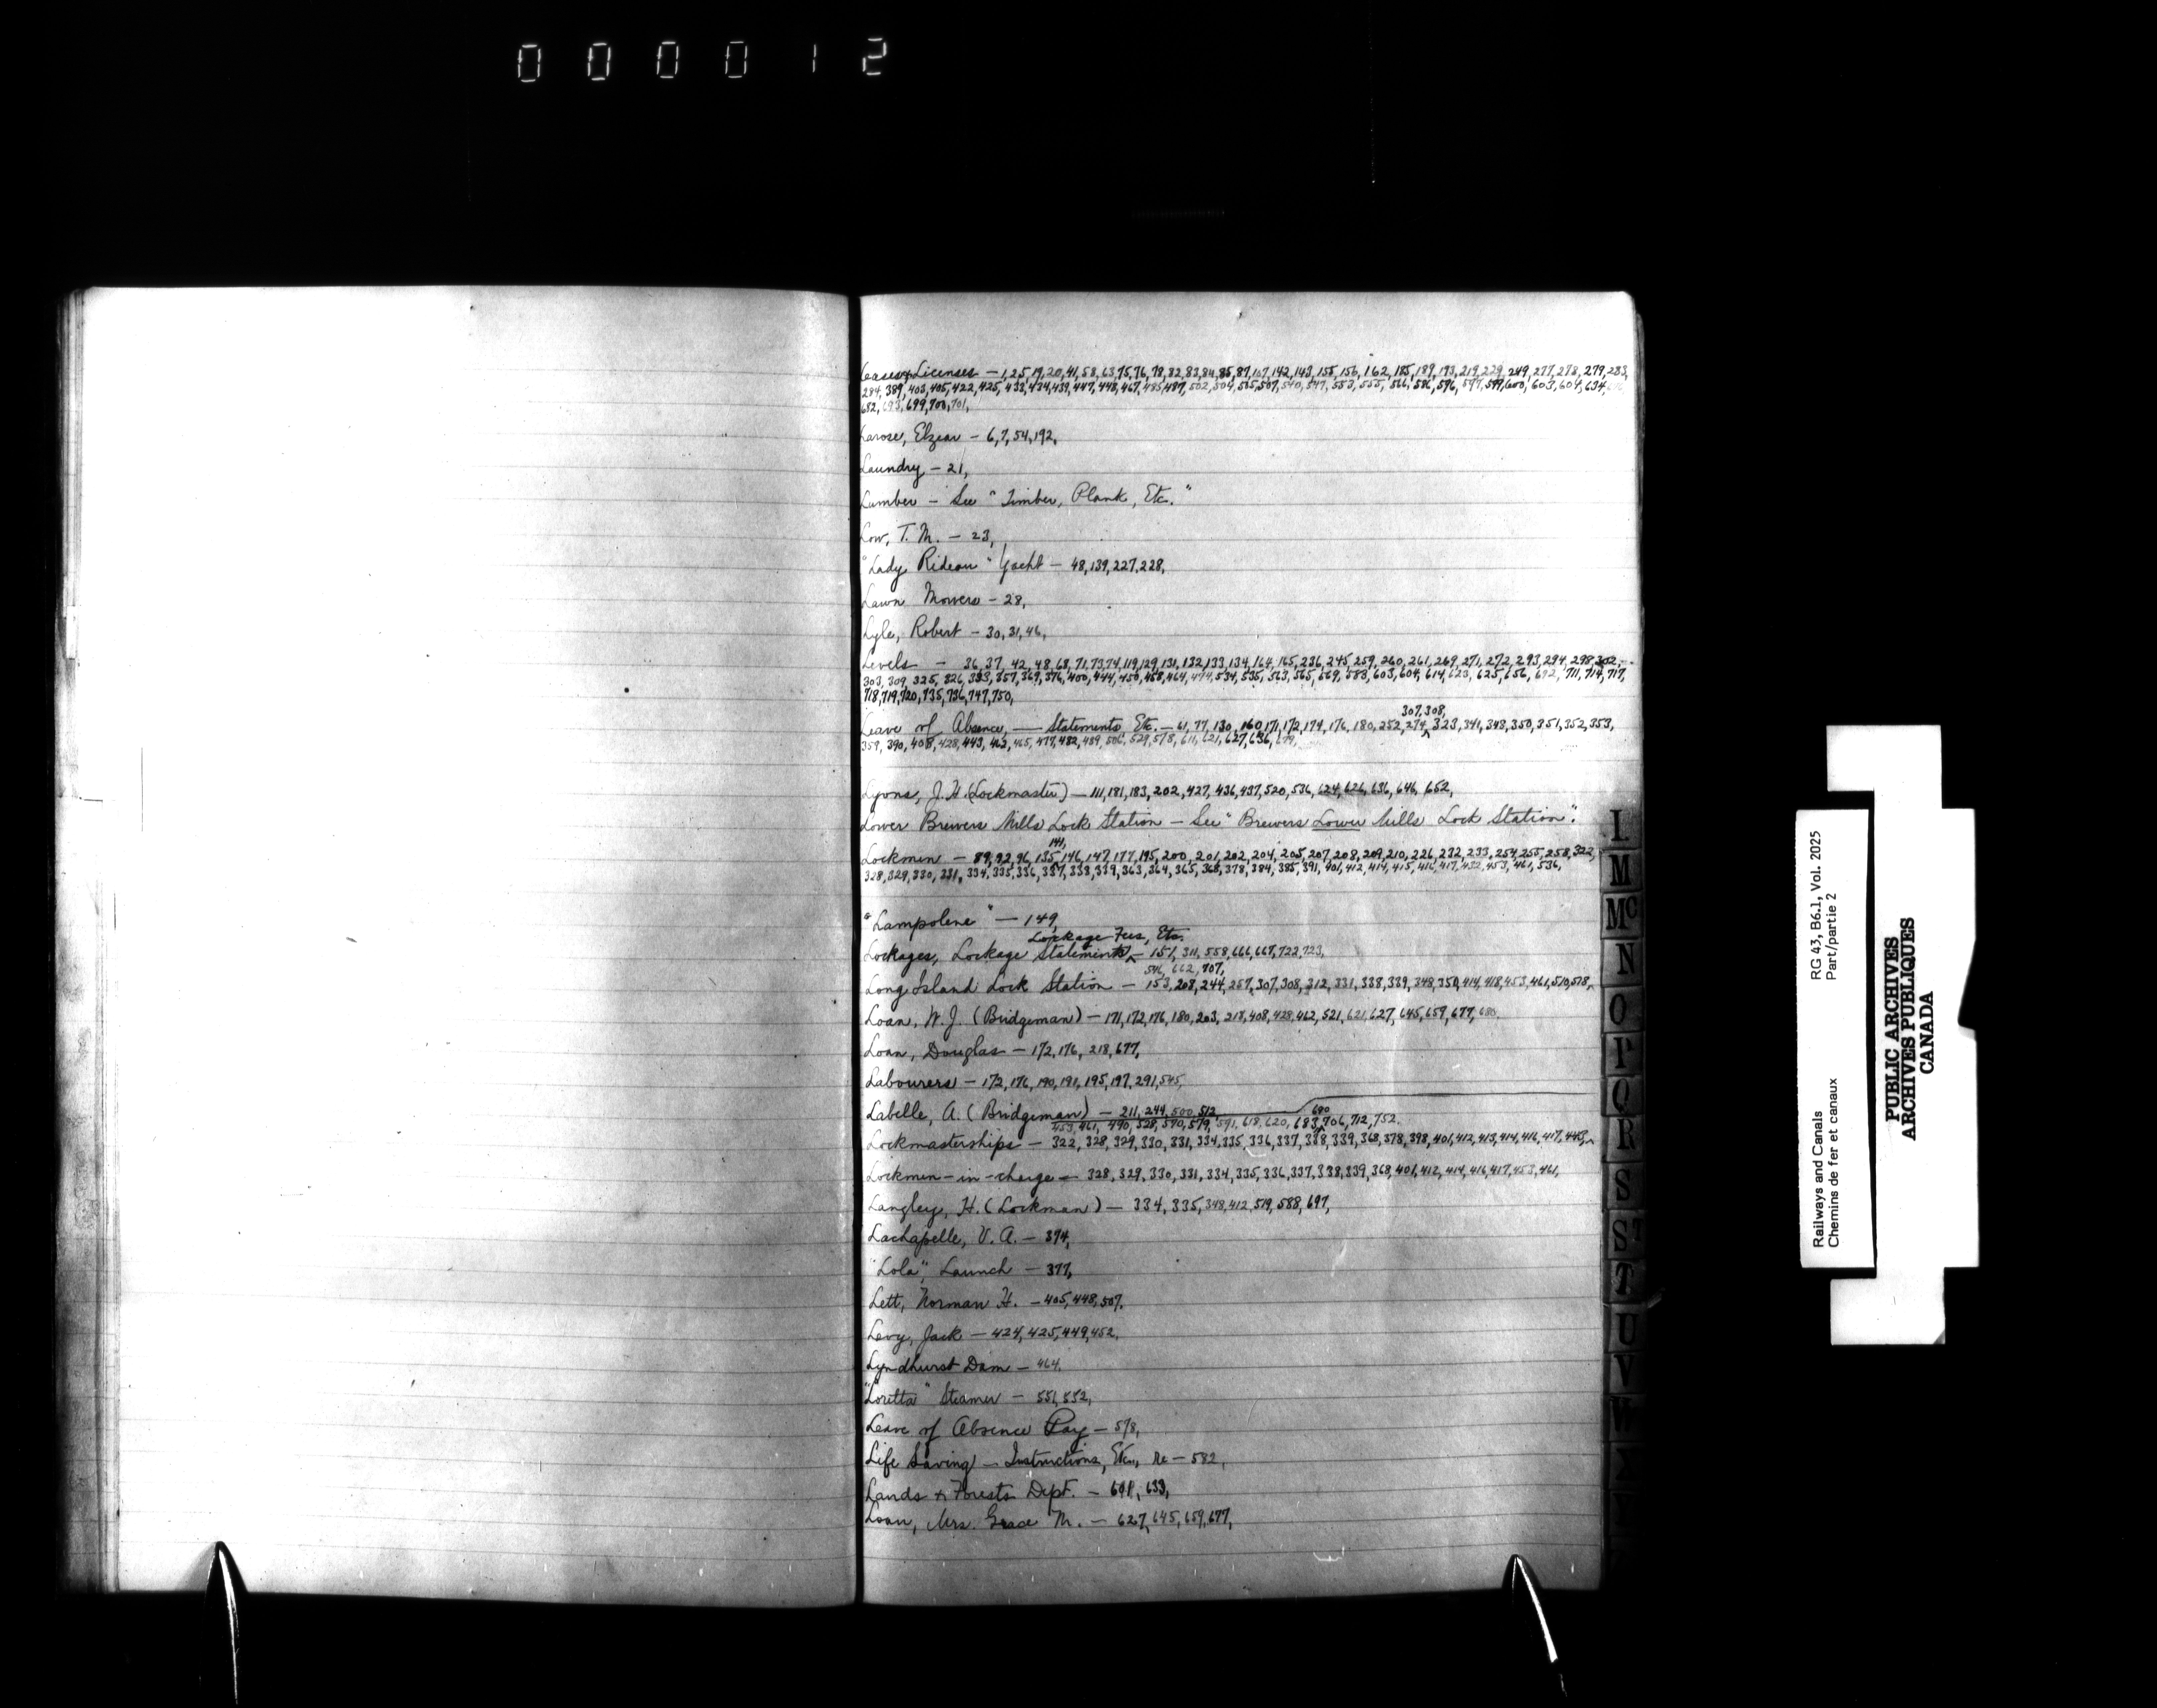 000012
Leases & Licenses — 1,2,5,19,20,41,58,63,75,76,78,82,83,84,85,87,107,142,143,155,156,162,185,189,193,219,229,249,277,278,279,283,
284,389,403,405,422,425,433,434,439,447,448,467,485,487,502,504,505,507,540,547,553,555,566,586,596,597,599,600,603,604,634,
682,693,699,700,701,
Larose, Elzear — 6,7,54,192,
Laundry — 21,
Lumber — See "Timber, Plank, Etc."
Low, T. M. — 23,
"Lady Rideau" Yacht — 48,139,227,228,
Lawn Mowers — 28,
Lyle, Robert — 30,31,46,
Levels — 36,37,42,48,68,71,73,74,119,129,131,132,133,134,164,165,236,245,259,260,261,269,271,272,293,294,298,302,
303,309,325,326,333,357,369,376,400,444,450,458,464,474,534,535,563,565,569,583,603,604,614,623,625,656,692,711,714,717,
718,719,720,735,736,747,750,
307,308,
Leave of Absence, — Statements Etc. — 61,77,130,160,171,172,174,176,180,252,274,323,341,348,350,351,352,353,
359,390,408,428,443,462,465,477,482,489,506,529,578,611,621,627,636,679,
Lyons, J. H. (Lockmaster) — 111,181,183,202,427,436,437,520,536,624,626,636,646,652,
Lower Brewers Mills Lock Station — See "Brewers Lower Mills Lock Station".
141,
Lockmen — 89,92,96,135,146,147,177,195,200,201,202,204,205,207,208,209,210,226,232,233,254,255,258,322,
328,329,330,331,334,335,336,337,338,339,363,364,365,368,378,384,385,391,401,412,414,415,416,417,432,453,461,536,
"Lampolene" — 149,
Lockage Fees, Etc.
Lockages, Lockage Statements, — 151,311,558,666,667,722,723,
546,662,707,
Long Island Lock Station — 153,208,244,257,307,308,312,331,338,339,348,350,414,418,453,461,510,518,
Loan, W. J. (Bridgeman) — 171,172,176,180,203,218,408,428,462,521,621,627,645,659,677,680.
Loan, Douglas — 172,176,218,677,
Labourers — 172,176,190,191,195,197,291,545,
Labelle, A. (Bridgeman) — 211,244,500,512,
680
453,461,490,528,570,579,591,618,620,683,706,712,752.
Lockmasterships — 322,328,329,330,331,334,335,336,337,338,339,368,378,398,401,412,413,414,416,417,443,
Lockmen-in-charge — 328,329,330,331,334,335,336,337,338,339,368,401,412,414,416,417,453,461,
Langley, H. (Lockman) — 334,335,348,412,519,588,697,
Lachapelle, V. A. — 374,
"Lola", Launch — 377,
Lett, Norman H. — 405,448,507.
Levy, Jack — 424,425,449,452.
Lyndhurst Dam — 464.
"Loretta" Steamer — 551,552,
Leave of Absence Pay — 578,
Life Saving — Instructions, Etc., re — 582,
Lands & Forests Dept. — 601,633,
Loan, Mrs. Grace M. — 627,645,659,677,
L
M
Mc
N
O
P
Q
R
S
ST
T
U
V
W
Railways and Canals
Chemins de fer et canaux
RG 43, B6.1, Vol. 2025
Part/partie 2
PUBLIC ARCHIVES
ARCHIVES PUBLIQUES
CANADA